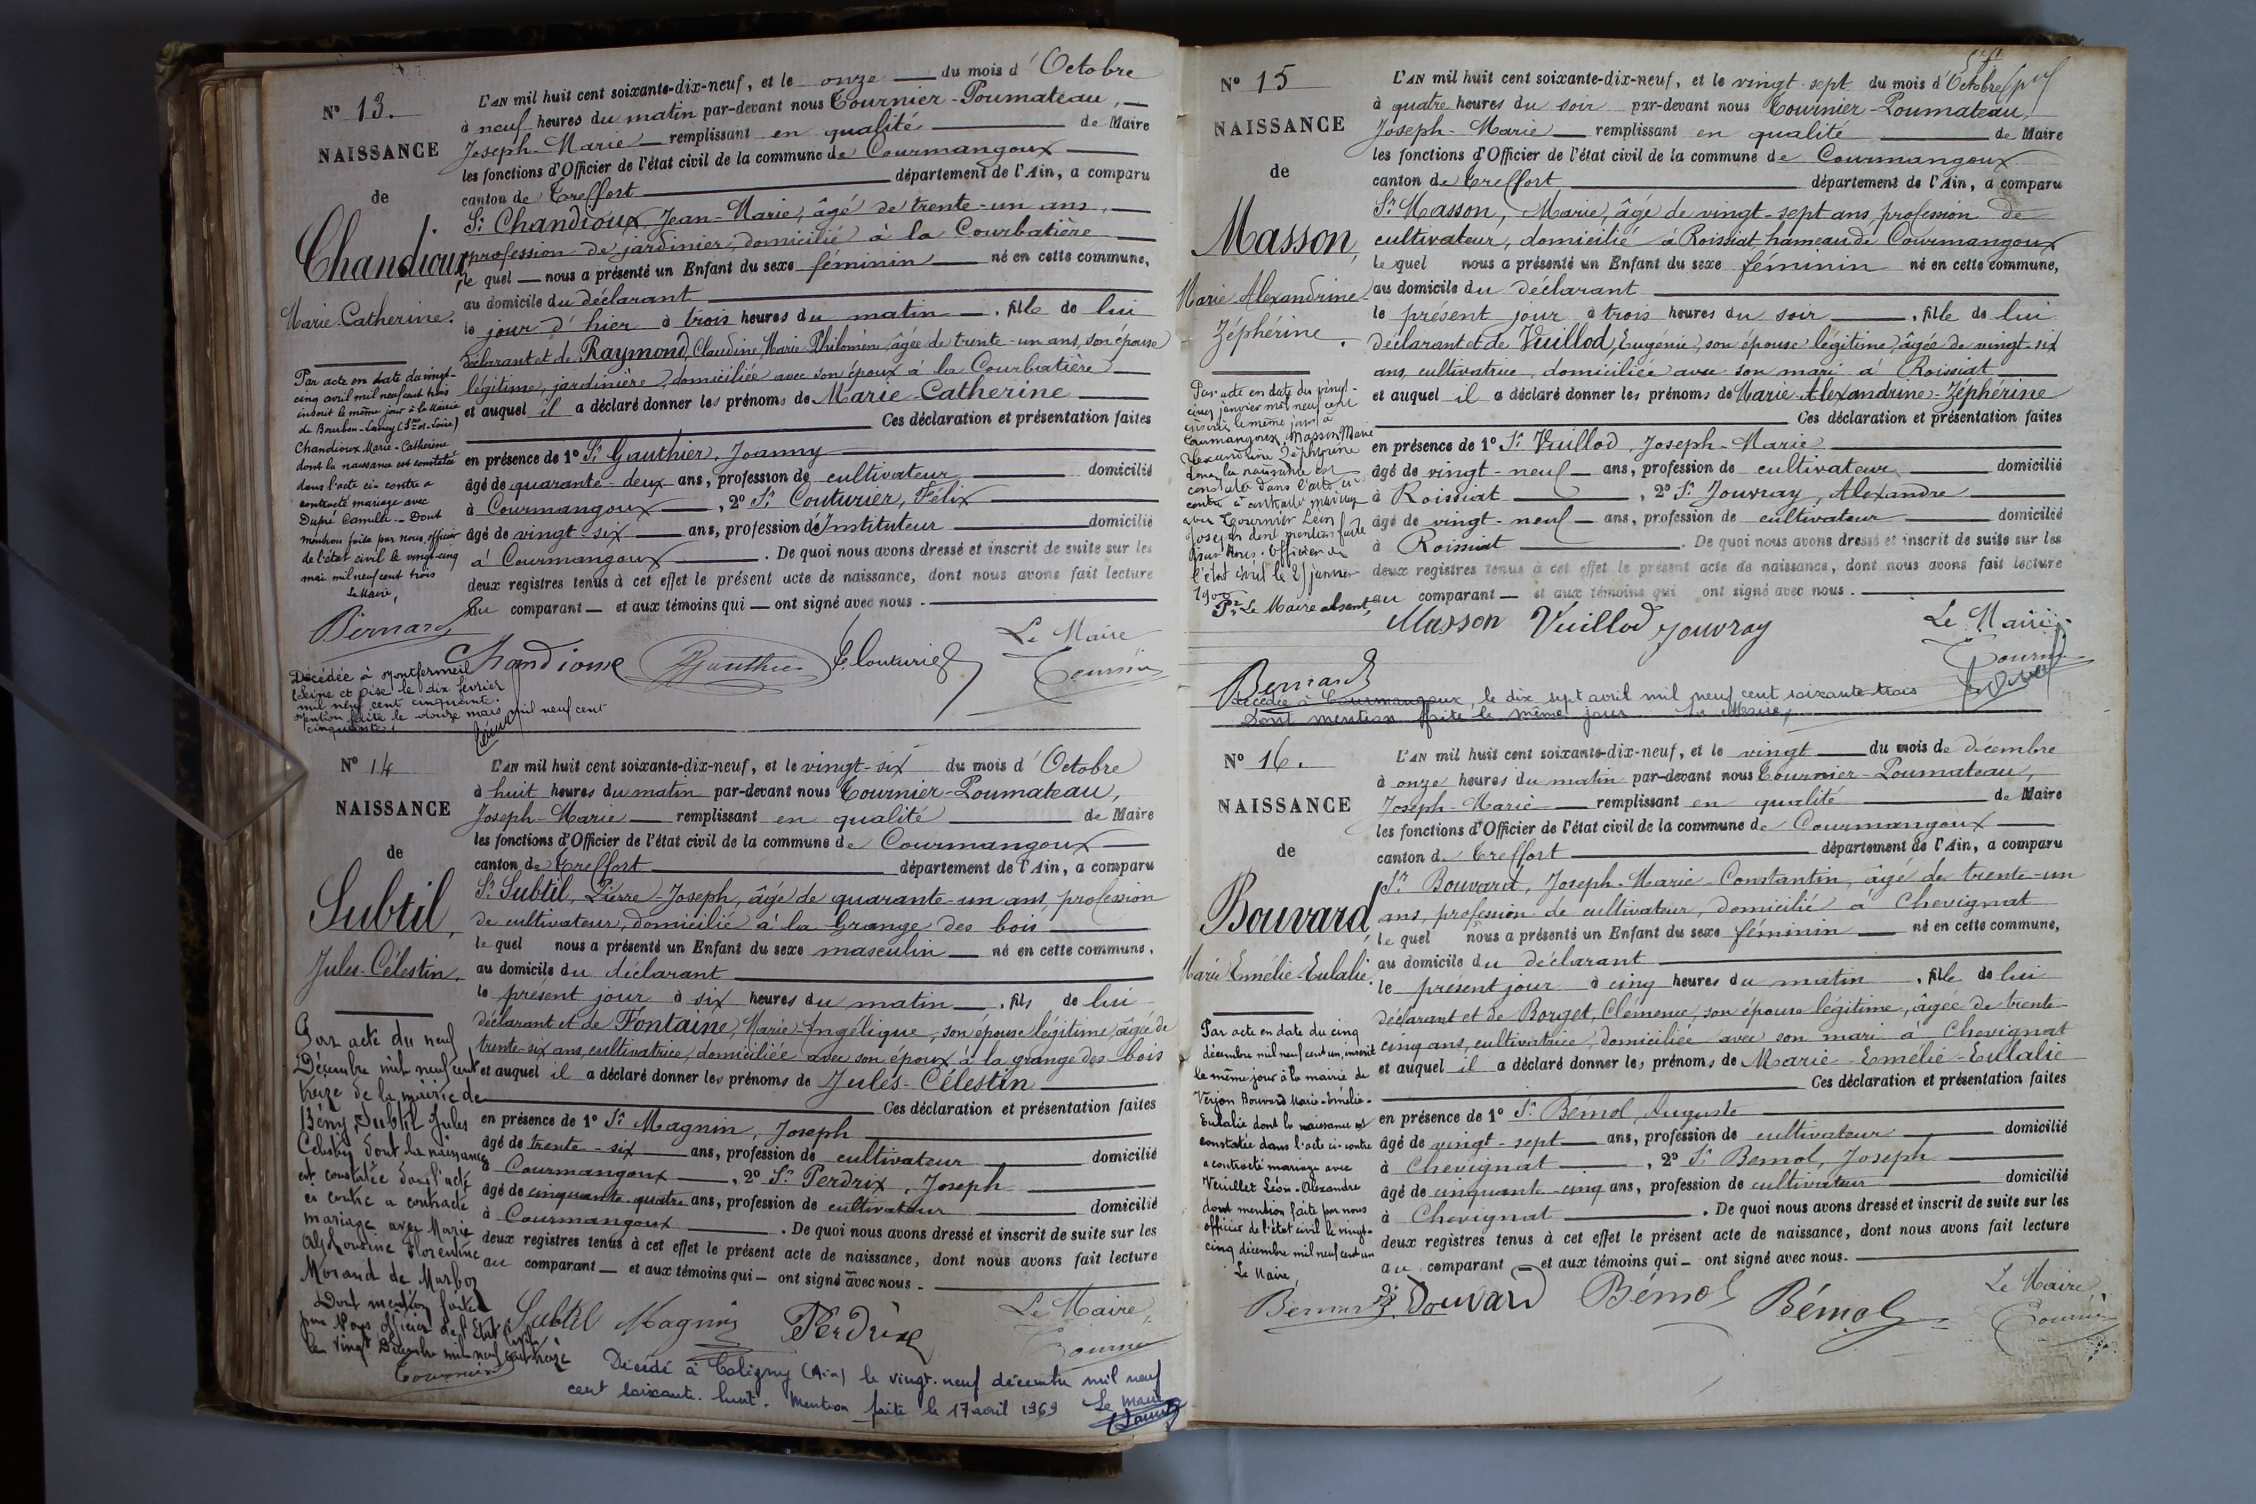 N° 13.
NAISSANCE
de
Chandioux,
Marie-Catherine.
L'AN mil huit cent soixante-dix-neuf, et le onze du mois d'Octobre
à neuf heures du matin par-devant nous Tournier-Poumateau,
Joseph-Marie remplissant en qualité de Maire
les fonctions d'Officier de l'état civil de la commune de Courmangoux
canton de Treffort département de l'Ain, a comparu
Sr Chandioux Jean-Marie, âgé de trente-un ans,
profession de jardinier, domicilié à la Courbatière
le quel nous a présenté un Enfant du sexe féminin né en cette commune,
au domicile du déclarant
le jour d'hier à trois heures du matin, fille de lui
déclarant et de Raymond, Claudine Marie Philomène, âgée de trente-un ans, son épouse
légitime, jardinière, domiciliée avec son époux à la Courbatière
et auquel il a déclaré donner les prénoms de Marie-Catherine
Ces déclaration et présentation faites
en présence de 1° Sr Gauthier, Joanny
âgé de quarante-deux ans, profession de cultivateur domicilié
à Courmangoux, 2° Sr Couturier, Félix
âgé de vingt-six ans, profession d'Instituteur domicilié
à Courmangoux. De quoi nous avons dressé et inscrit de suite sur les
deux registres tenus à cet effet le présent acte de naissance, dont nous avons fait lecture
au comparant et aux témoins qui ont signé avec nous.
Le Maire
Chandioux Gauthier Couturier Tournier
Par acte en date du vingt-
cinq avril mil neuf cent trois
inscrit le même jour à la Mairie
de Bourbon-Lancy (Sne et Loire)
Chandioux Marie-Catherine
dont la naissance est constatée
dans l'acte ci-contre a
contracté mariage avec
Dupré Camille. - Dont
mention faite par nous, officier
de l'état civil le vingt-cinq
mai mil neuf cent trois
Le Maire,
Bernard
Décédée à Montfermeil
(Seine et Oise) le dix février
mil neuf cent cinquante.
Mention faite le douze mars mil neuf cent
cinquante.
N° 14
NAISSANCE
de
Subtil,
Jules-Célestin.
L'AN mil huit cent soixante-dix-neuf, et le vingt-six du mois d'Octobre
à huit heures du matin par-devant nous Tournier-Poumateau,
Joseph-Marie remplissant en qualité de Maire
les fonctions d'Officier de l'état civil de la commune de Courmangoux
canton de Treffort département de l'Ain, a comparu
Sr Subtil, Pierre-Joseph, âgé de quarante-un ans, profession
de cultivateur, domicilié à la Grange des bois
le quel nous a présenté un Enfant du sexe masculin né en cette commune,
au domicile du déclarant
le présent jour à six heures du matin, fils de lui
déclarant et de Fontaine, Marie-Angélique, son épouse légitime, âgée de
trente-six ans, cultivatrice, domiciliée avec son époux à la grange des bois
et auquel il a déclaré donner les prénoms de Jules-Célestin
Ces déclaration et présentation faites
en présence de 1° Sr Magnin, Joseph
âgé de trente-six ans, profession de cultivateur domicilié
à Courmangoux, 2° Sr Perdrix, Joseph
âgé de cinquante-quatre ans, profession de cultivateur domicilié
à Courmangoux. De quoi nous avons dressé et inscrit de suite sur les
deux registres tenus à cet effet le présent acte de naissance, dont nous avons fait lecture
au comparant et aux témoins qui ont signé avec nous.
Le Maire,
Subtil Magnin Perdrix Tournier
Par acte du neuf
Décembre mil neuf cent
treize de la mairie de
Bény, Subtil Jules
Célestin dont la naissance
est constatée dans l'acte
ci contre a contracté
mariage avec Marie
Alphonsine Florentine
Morand de Marboz
Dont mention faite
par Nous officier de l'Etat Civil
le vingt Décembre mil neuf cent treize
Tournier
Décédé à Coligny (Ain) le vingt-neuf décembre mil neuf
cent soixante-huit. Mention faite le 17 avril 1969 Le Maire
N° 15
NAISSANCE
de
Masson,
Marie-Alexandrine-
Zéphérine.
L'AN mil huit cent soixante-dix-neuf, et le vingt-sept du mois d'Octobre
à quatre heures du soir par-devant nous Tournier-Poumateau,
Joseph-Marie remplissant en qualité de Maire
les fonctions d'Officier de l'état civil de la commune de Courmangoux
canton de Treffort département de l'Ain, a comparu
Sr Masson, Marie, âgé de vingt-sept ans, profession de
cultivateur, domicilié à Roissiat hameau de Courmangoux
le quel nous a présenté un Enfant du sexe féminin né en cette commune,
au domicile du déclarant
le présent jour à trois heures du soir, fille de lui
déclarant et de Vuillod, Eugénie, son épouse légitime, âgée de vingt-six
ans, cultivatrice, domiciliée avec son mari à Roissiat
et auquel il a déclaré donner les prénoms de Marie-Alexandrine-Zéphérine
Ces déclaration et présentation faites
en présence de 1° Sr Vuillod, Joseph-Marie
âgé de vingt-neuf ans, profession de cultivateur domicilié
à Roissiat, 2° Sr Jouvray, Alexandre
âgé de vingt-neuf ans, profession de cultivateur domicilié
à Roissiat. De quoi nous avons dressé et inscrit de suite sur les
deux registres tenus à cet effet le présent acte de naissance, dont nous avons fait lecture
au comparant et aux témoins qui ont signé avec nous.
Masson Vuillod Jouvray
Le Maire
Tournier
Par acte en date du vingt-
cinq janvier mil neuf cent
inscrit le même jour à
Courmangoux, Masson Marie
Alexandrine Zéphérine
dont la naissance est
constatée dans l'acte ci
contre a contracté mariage
avec Tournier Léon
Joseph dont mention faite
par Nous. Officier de
l'état civil le 25 janvier
1900
Pr Le Maire absent,
Bernard
Décédée à Courmangoux, le dix sept avril mil neuf cent soixante-trois
Dont mention faite le même jour Le Maire,
N° 16.
NAISSANCE
de
Bouvard,
Marie Emélie-Eulalie.
L'AN mil huit cent soixante-dix-neuf, et le vingt du mois de décembre
à onze heures du matin par-devant nous Tournier-Poumateau,
Joseph-Marie remplissant en qualité de Maire
les fonctions d'Officier de l'état civil de la commune de Courmangoux
canton de Treffort département de l'Ain, a comparu
Sr Bouvard, Joseph-Marie-Constantin, âgé de trente-un
ans, profession de cultivateur, domicilié à Chevignat
le quel nous a présenté un Enfant du sexe féminin né en cette commune,
au domicile du déclarant
le présent jour à cinq heures du matin, fille de lui
déclarant et de Borget, Clémence, son épouse légitime, âgée de trente-
cinq ans, cultivatrice, domiciliée avec son mari à Chevignat
et auquel il a déclaré donner les prénoms de Marie-Emélie-Eulalie
Ces déclaration et présentation faites
en présence de 1° Sr Bémol, Auguste
âgé de vingt-sept ans, profession de cultivateur domicilié
à Chevignat, 2° Sr Bémol, Joseph
âgé de cinquante-cinq ans, profession de cultivateur domicilié
à Chevignat. De quoi nous avons dressé et inscrit de suite sur les
deux registres tenus à cet effet le présent acte de naissance, dont nous avons fait lecture
au comparant et aux témoins qui ont signé avec nous.
Le Maire
Bouvard Bémol Bémol Tournier
Par acte en date du cinq
décembre mil neuf cent un, inscrit
le même jour à la mairie de
Verjon Bouvard Marie-Emélie-
Eulalie dont la naissance est
constatée dans l'acte ci-contre
a contracté mariage avec
Vuillet Léon-Alexandre
dont mention faite par nous
officier de l'état civil le vingt-
cinq décembre mil neuf cent un
Le Maire,
Bernard